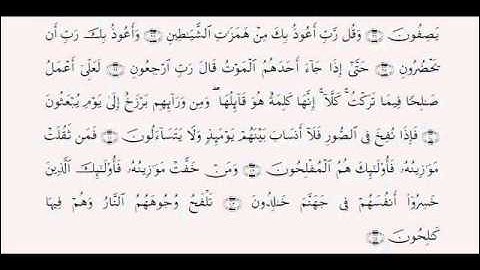 يَصِفُونَ ۝ وَقُل رَّبِّ أَعُوذُ بِكَ مِنْ هَمَزَٰتِ الشَّيَٰطِينِ ۝ وَأَعُوذُ بِكَ رَبِّ أَن
يَحْضُرُونِ ۝ حَتَّىٰٓ إِذَا جَآءَ أَحَدَهُمُ الْمَوْتُ قَالَ رَبِّ ارْجِعُونِ ۝ لَعَلِّىٓ أَعْمَلُ
صَٰلِحًا فِيمَا تَرَكْتُ ۚ كَلَّآ ۚ إِنَّهَا كَلِمَةٌ هُوَ قَآئِلُهَا ۖ وَمِن وَرَآئِهِم بَرْزَخٌ إِلَىٰ يَوْمِ يُبْعَثُونَ
۝ فَإِذَا نُفِخَ فِى الصُّورِ فَلَآ أَنسَابَ بَيْنَهُمْ يَوْمَئِذٍ وَلَا يَتَسَآءَلُونَ ۝ فَمَن ثَقُلَتْ
مَوَٰزِينُهُۥ فَأُو۟لَٰٓئِكَ هُمُ الْمُفْلِحُونَ ۝ وَمَنْ خَفَّتْ مَوَٰزِينُهُۥ فَأُو۟لَٰٓئِكَ الَّذِينَ
خَسِرُوٓا۟ أَنفُسَهُمْ فِى جَهَنَّمَ خَٰلِدُونَ ۝ تَلْفَحُ وُجُوهَهُمُ النَّارُ وَهُمْ فِيهَا
كَٰلِحُونَ ۝